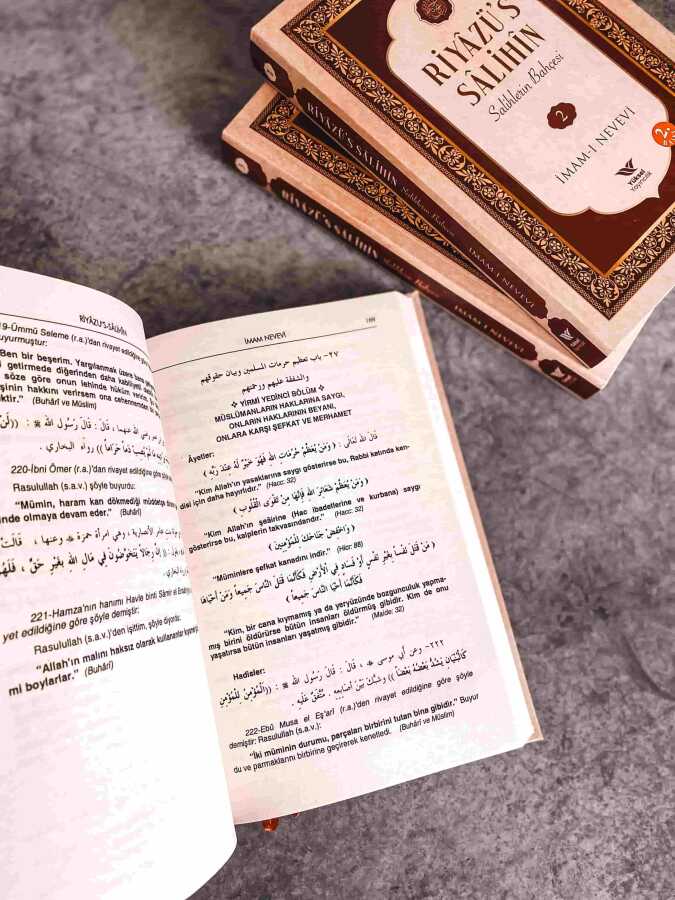 RİYÂZÜ'S
SÂLİHÎN
Salihlerin Bahçesi
2
İMAM-I NEVEVİ
Yüksel
Yayıncılık
RİYÂZÜ'S SÂLİHÎN
İMAM-I NEVEVİ
RİYÂZÜ'S SÂLİHÎN
İMAM-I NEVEVİ
RİYÂZU'S-SÂLİHÎN
19-Ümmü Seleme (r.a.)'dan rivayet edildiğine göre
buyurmuştur:
"Ben bir beşerim. Yargılanmak üzere bana
getirmede diğerinden daha kabiliyetli
söze göre onun lehinde hüküm veririm.
şinin hakkını verirsem ona cehennemden
ktir." (Buhârî ve Müslim)
رواه البخاري .
220-İbni Ömer (r.a.)'dan rivayet edildiğine göre
Rasulullah (s.a.v.) şöyle buyurdu:
"Mümin, haram kan dökmediği müddetçe
inde olmaya devam eder." (Buhârî)
وهي امرأة حمزة وعنها ، قالت
إن رجالا يتخوضون في مال الله بغير حق ، فلهم
221-Hamza'nın hanımı Havle binti Sâmir el Ensâriyye
yet edildiğine göre şöyle demiştir:
Rasulullah (s.a.v.)'den işitim, şöyle diyordu:
"Allah'ın malını haksız olarak kullananlar kıyamet
mi boylarlar." (Buhârî)
İMAM NEVEVİ
169
٢٧- باب تعظيم حرمات المسلمين وبيان حقوقهم
والشفقة عليهم ورحمتهم
❖ YİRMİ YEDİNCİ BÖLÜM ❖
MÜSLÜMANLARIN HAKLARINA SAYGI,
ONLARIN HAKLARININ BEYANI,
ONLARA KARŞI ŞEFKAT VE MERHAMET
Âyetler:
قَالَ اللهُ تَعَالَى : ﴿ وَمَنْ يُعَظِّمْ حُرُمَاتِ اللهِ فَهُوَ خَيْرٌ لَهُ عِنْدَ رَبِّهِ ﴾
"Kim Allah'ın yasaklarına saygı gösterirse bu, Rabbi katında ken-
disi için daha hayırlıdır." (Hacc: 32)
﴿ وَمَنْ يُعَظِّمْ شَعَائِرَ اللهِ فَإِنَّهَا مِنْ تَقْوَى الْقُلُوبِ ﴾
"Kim Allah'ın şeâirine (Hac ibadetlerine ve kurbana) saygı
gösterirse bu, kalplerin takvasındandır." (Hacc: 32)
﴿ وَاخْفِضْ جَنَاحَكَ لِلْمُؤْمِنِينَ ﴾
"Müminlere şefkat kanadını indir." (Hicr: 88)
﴿ مَنْ قَتَلَ نَفْساً بِغَيْرِ نَفْسٍ أَوْ فَسَادٍ فِي الْأَرْضِ فَكَأَنَّمَا قَتَلَ النَّاسَ جَمِيعاً وَمَنْ أَحْيَاهَا
فَكَأَنَّمَا أَحْيَا النَّاسَ جَمِيعاً ﴾
"Kim, bir cana kıymamış ya da yeryüzünde bozgunculuk yapma-
mış birini öldürürse bütün insanları öldürmüş gibidir. Kim de onu
yaşatırsa bütün insanları yaşatmış gibidir." (Maide: 32)
Hadisler:
٢٢٢- وعن أبي موسى ، قال : قال رسول الله : ((الْمُؤْمِنُ لِلْمُؤْمِنِ
كَالْبُنْيَانِ يَشُدُّ بَعْضُهُ بَعْضاً)) وشبك بين أصابعه . مُتَّفَقٌ عَلَيهِ .
222-Ebû Musa el Eş'arî (r.a.)'den rivayet edildiğine göre şöyle
demiştir: Rasulullah (s.a.v.):
"İki müminin durumu, parçaları birbirini tutan bina gibidir." Buyur
du ve parmaklarını birbirine geçirerek kenetledi. (Buhârî ve Müslim)